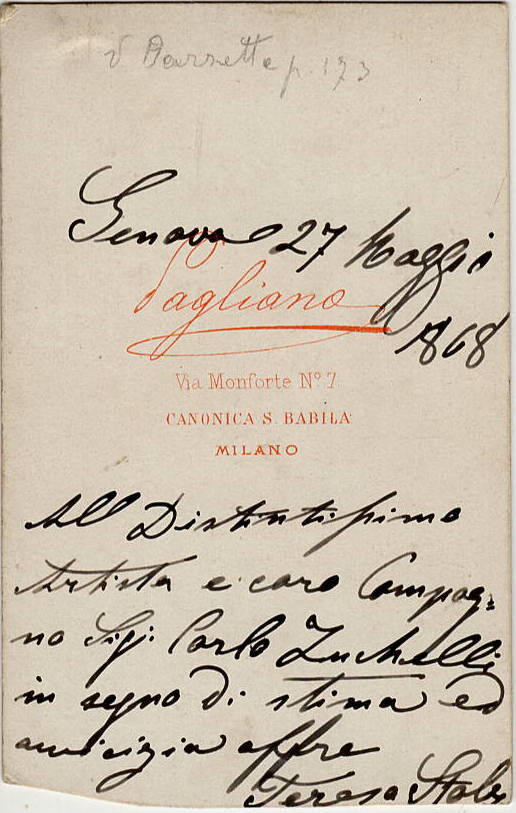 V Barsette p. 173
Genova 27 Maggio
1868
Pagliano
Via Monforte Nº 7
CANONICA S. BABILA
MILANO
All Distintissimo
Artista e caro Compag=
no Sig: Carlo Zuchelli
in segno di stima ed
amicizia offre
Teresa Stolz